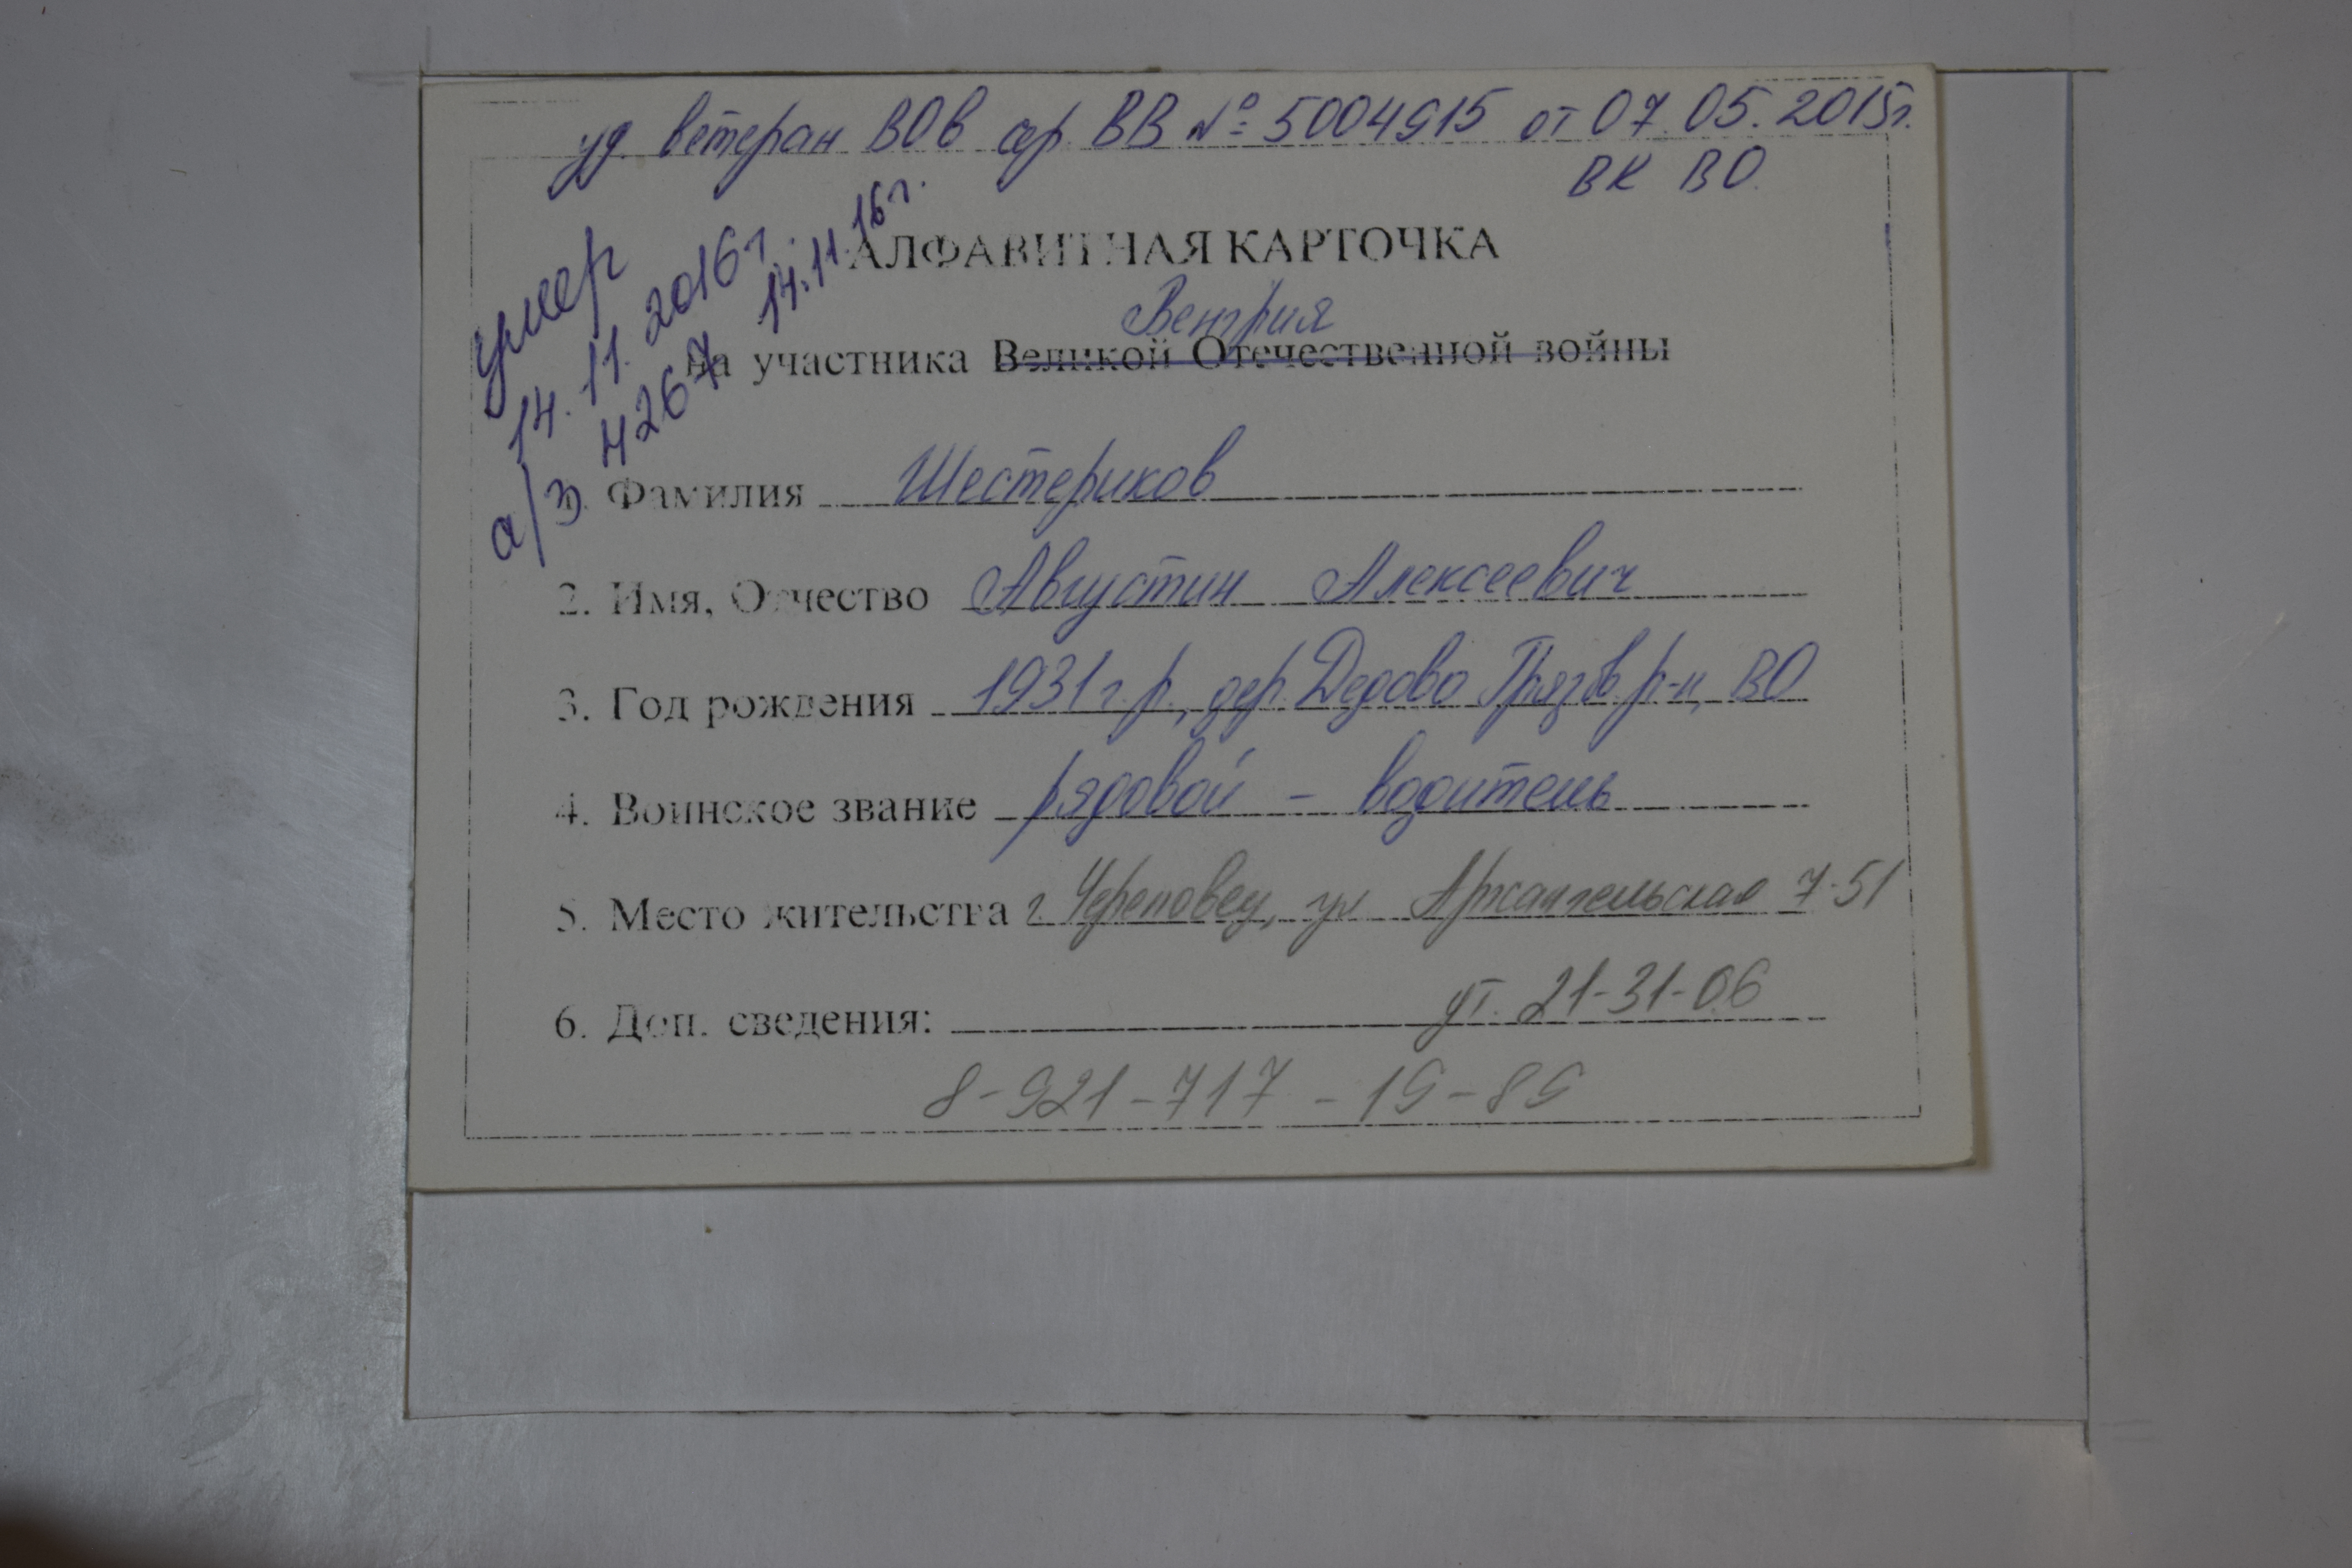 уд. ветеран ВОв сер. ВВ № 5004915 от 07.05.2015г.
ВК ВО.
умер
14.11.2016г.
а/з 4267 14.11.16г.
АЛФАВИТНАЯ КАРТОЧКА
Венгрия
на участника Великой Отечественной войны
1. Фамилия Шестериков
2. Имя, Отчество Августин Алексеевич
3. Год рождения 1931г.р., дер. Дедово Грязов. р-н, ВО
4. Воинское звание рядовой - водитель
5. Место жительства г. Череповец, ул Архангельская 7-51
6. Доп. сведения: ут. 21-31-06
8-921-717-19-89